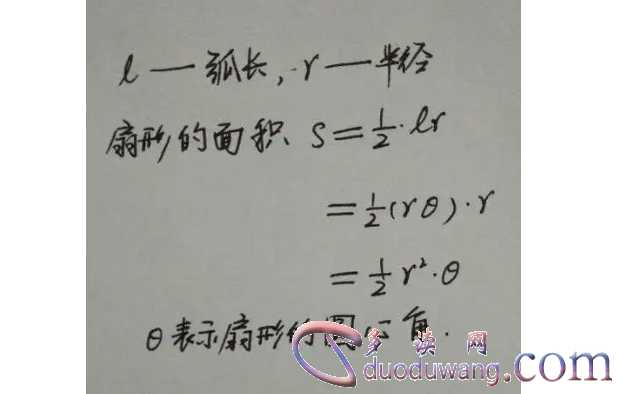 l — 弧长, r — 半径
扇形的面积 S = 1/2 · lr
= 1/2 (rθ) · r
= 1/2 r² · θ
θ表示扇形的圆心角.
多读网
duoduwang.com